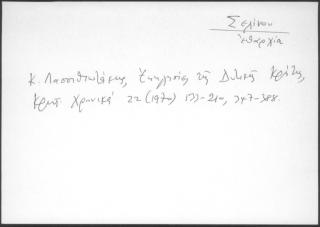 Σελίνου
ἐπαρχία
Κ. Λασσιθιωτάκης, Ἐκκλησίες τῆς Δυτικῆς Κρήτης,
Κρητ. Χρονικά 22 (1970) 133-210, 347-388.